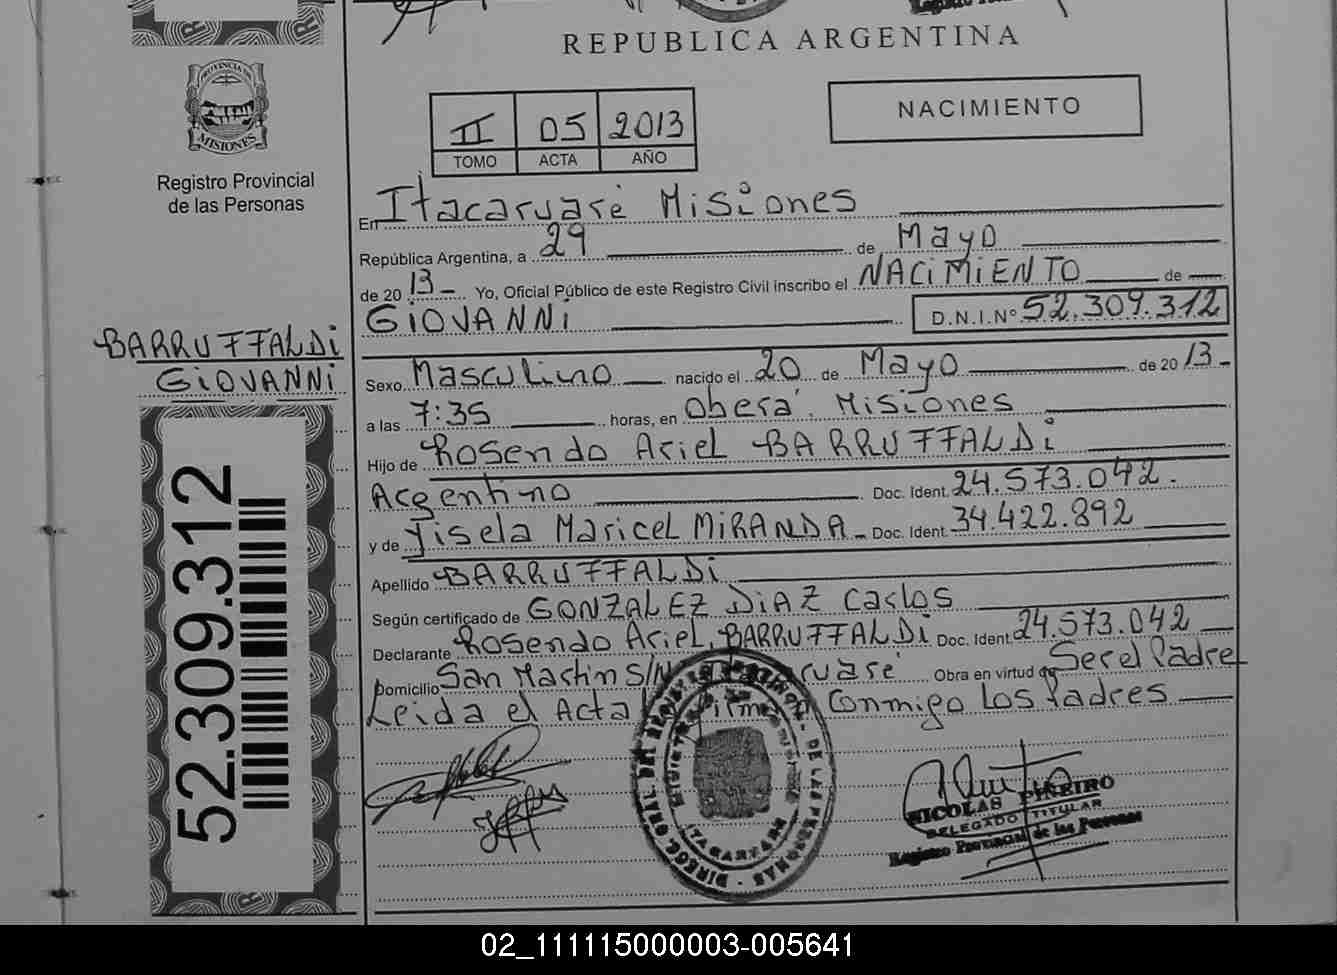 REPUBLICA ARGENTINA
PROVINCIA DE
MISIONES
Registro Provincial
de las Personas
II 05 2013
TOMO ACTA AÑO
NACIMIENTO
En Itacaruaré Misiones
República Argentina, a 29 de Mayo
de 2013 Yo, Oficial Público de este Registro Civil inscribo el NACiMiENTO de
GiOVANNi D.N.I.Nº 52.309.312
BARRUFFALDi
GiOVANNi
Sexo Masculino nacido el 20 de Mayo de 2013
a las 7:35 horas, en Oberá. Misiones
Hijo de Rosendo Ariel BARRUFFALDi
Argentino Doc. Ident. 24.573.042.
y de Yisela Maricel MiRANDA Doc. Ident. 34.422.892
Apellido BARRUFFALDi
Según certificado de GONZALEZ DiAZ Carlos
Declarante Rosendo Ariel, BARRUFFALDi Doc. Ident. 24.573.042
Domicilio San Martin S/N Obra en virtud de Ser el Padre
Leida el Acta Conmigo Los Padres
52.309.312
NICOLAS PIÑEIRO
DELEGADO TITULAR
Registro Provincial de las Personas
02_111115000003-005641